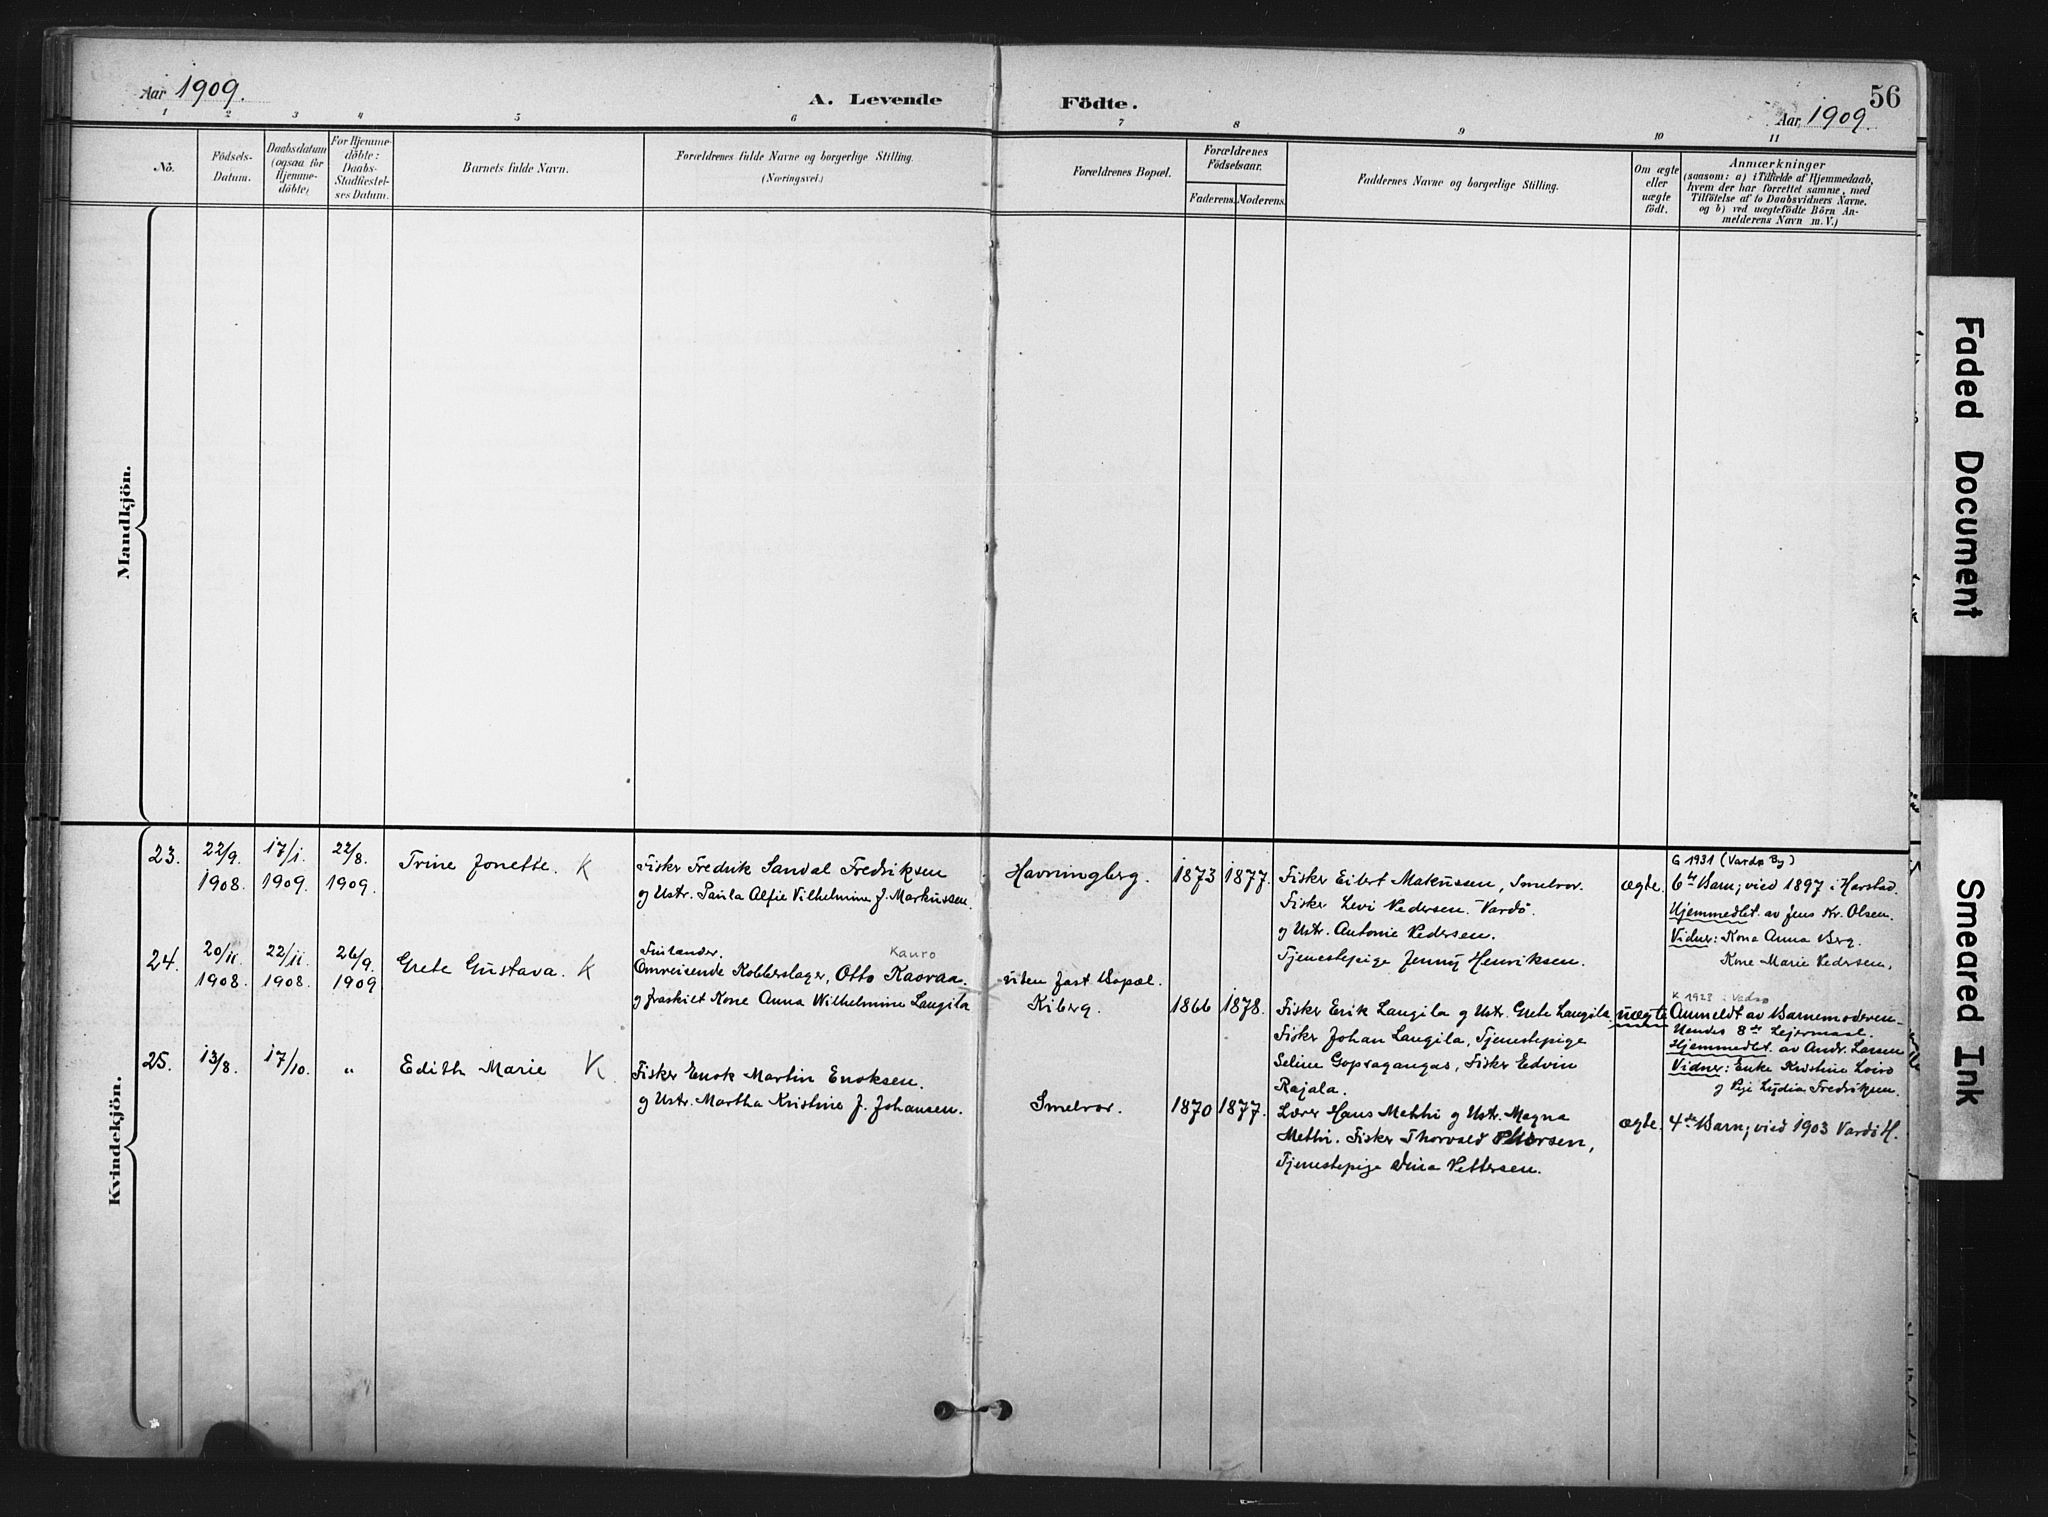 Aar 1909.
A. Levende Födte.
56
Aar 1909.
1 2 3 4 5 6 7 8 9 10 11
No.
Födsels-
Datum.
Daabsdatum
(ogsaa for
Hjemme-
döbte)
For Hjemme-
döbte:
Daabs-
Stadfæstel-
ses Datum.
Barnets fulde Navn.
Forældrenes fulde Navne og borgerlige Stilling.
(Næringsvei.)
Forældrenes Bopæl.
Forældrenes
Födselsaar.
Faderens. Moderens.
Faddernes Navne og borgerlige Stilling.
Om ægte
eller
uægte
födt.
Anmærkninger
(saasom: a) i Tilfælde af Hjemmedaab,
hvem der har forrettet samme, med
Tilföielse af to Daabsvidners Navne.
og b) ved uægtefödte Börn An-
melderens Navn m. V.)
Mandkjön.
Kvindekjön.
23.
22/9.
1908.
17/1.
1909.
22/8.
1909.
Trine Jonette. K
Fisker Fredrik Sandal Fredriksen
og Ustr. Paula Alfie Vilhelmine f. Markussen.
Havningberg.
1873 1877.
Fisker Eilert Makussen, Smelror.
Fisker Levi Pedersen. Vardö.
og Ustr. Antonie Pedersen.
Tjenestepige Jenny Henriksen.
ægte.
G 1931 (Vardø By)
6te Barn; vied 1897 i Harstad.
Hjemmedbt. av Jens Kr. Olsen.
Vidner: Kona Anna Berg.
Kone Marie Pedersen.
24.
20/11.
1908.
22/11.
1908.
26/9.
1909
Grete Gustava. K
Finlænder. Kauro
Omreisende Kobberslager, Otto Kaavaa.
og fraskilt Kone Anna Wilhelmine Laugila
uden fast Bopæl.
Kiberg.
1866 1878.
Fisker Erik Laugila og Ustr. Grete Laugila
Fisker Johan Laugila, Tjenestepige
Seline Gopragangas, Fisker Edvin
Rajala.
uægte
K 1923 i Vadsø
Anmeldt av Barnemoderen.
8de Lejermaal.
Hjemmedbt. av Andr. Larsen
Vidner: Enke Kristine
og Pige Lydia Fredriksen.
25.
13/8.
17/10.
"
Edith Marie K
Fisker Enok Martin Enoksen.
og Ustr. Martha Kristine f. Johansen.
Smelror.
1870 1877.
Lærer Hans Methi og Ustr. Magna
Methi. Fisker Thorvald Thorsen,
Tjenestepige Dina Pettersen.
ægte.
4de Barn; vied 1903 Vardö H.
Faded Document
Smeared Ink